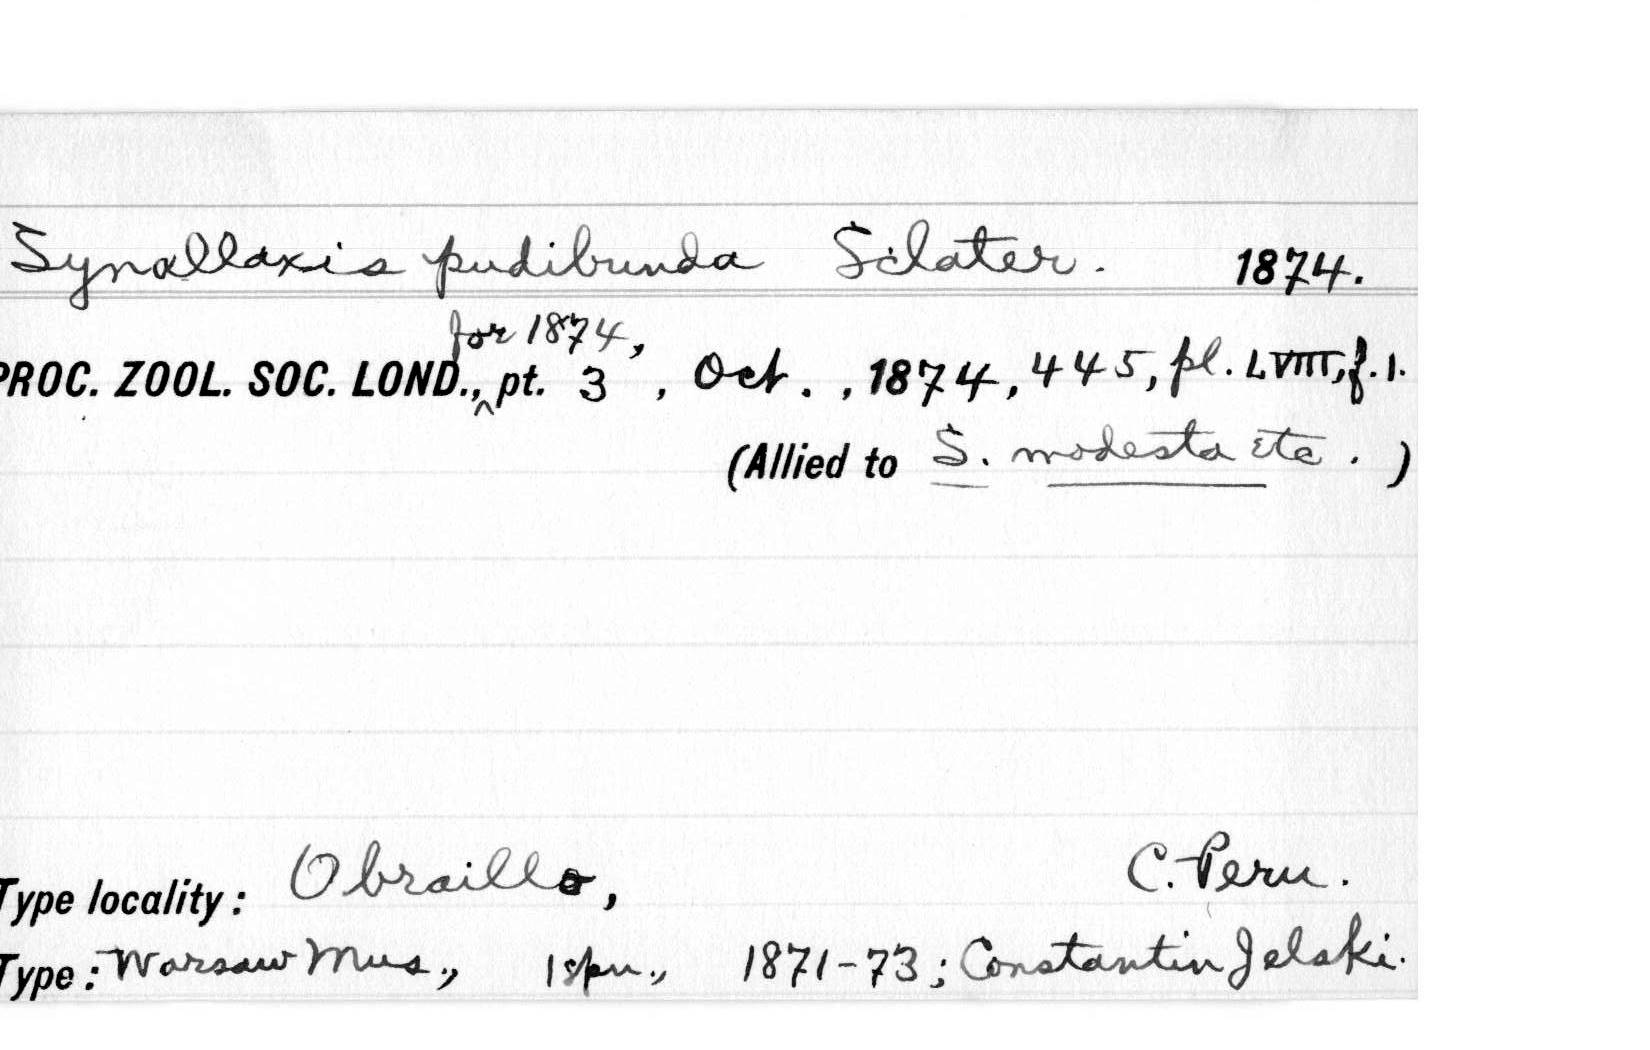 Synallaxis pudibunda Sclater. 1874.
for 1874,
PROC. ZOOL. SOC. LOND., ^ pt. 3 , Oct. , 1874, 445, pl. LVIII, f. 1.
(Allied to S. modesta etc . )
Type locality: Obraillo, C. Peru.
Type: Warsaw Mus., 1 spn., 1871-73; Constantin Jelski.